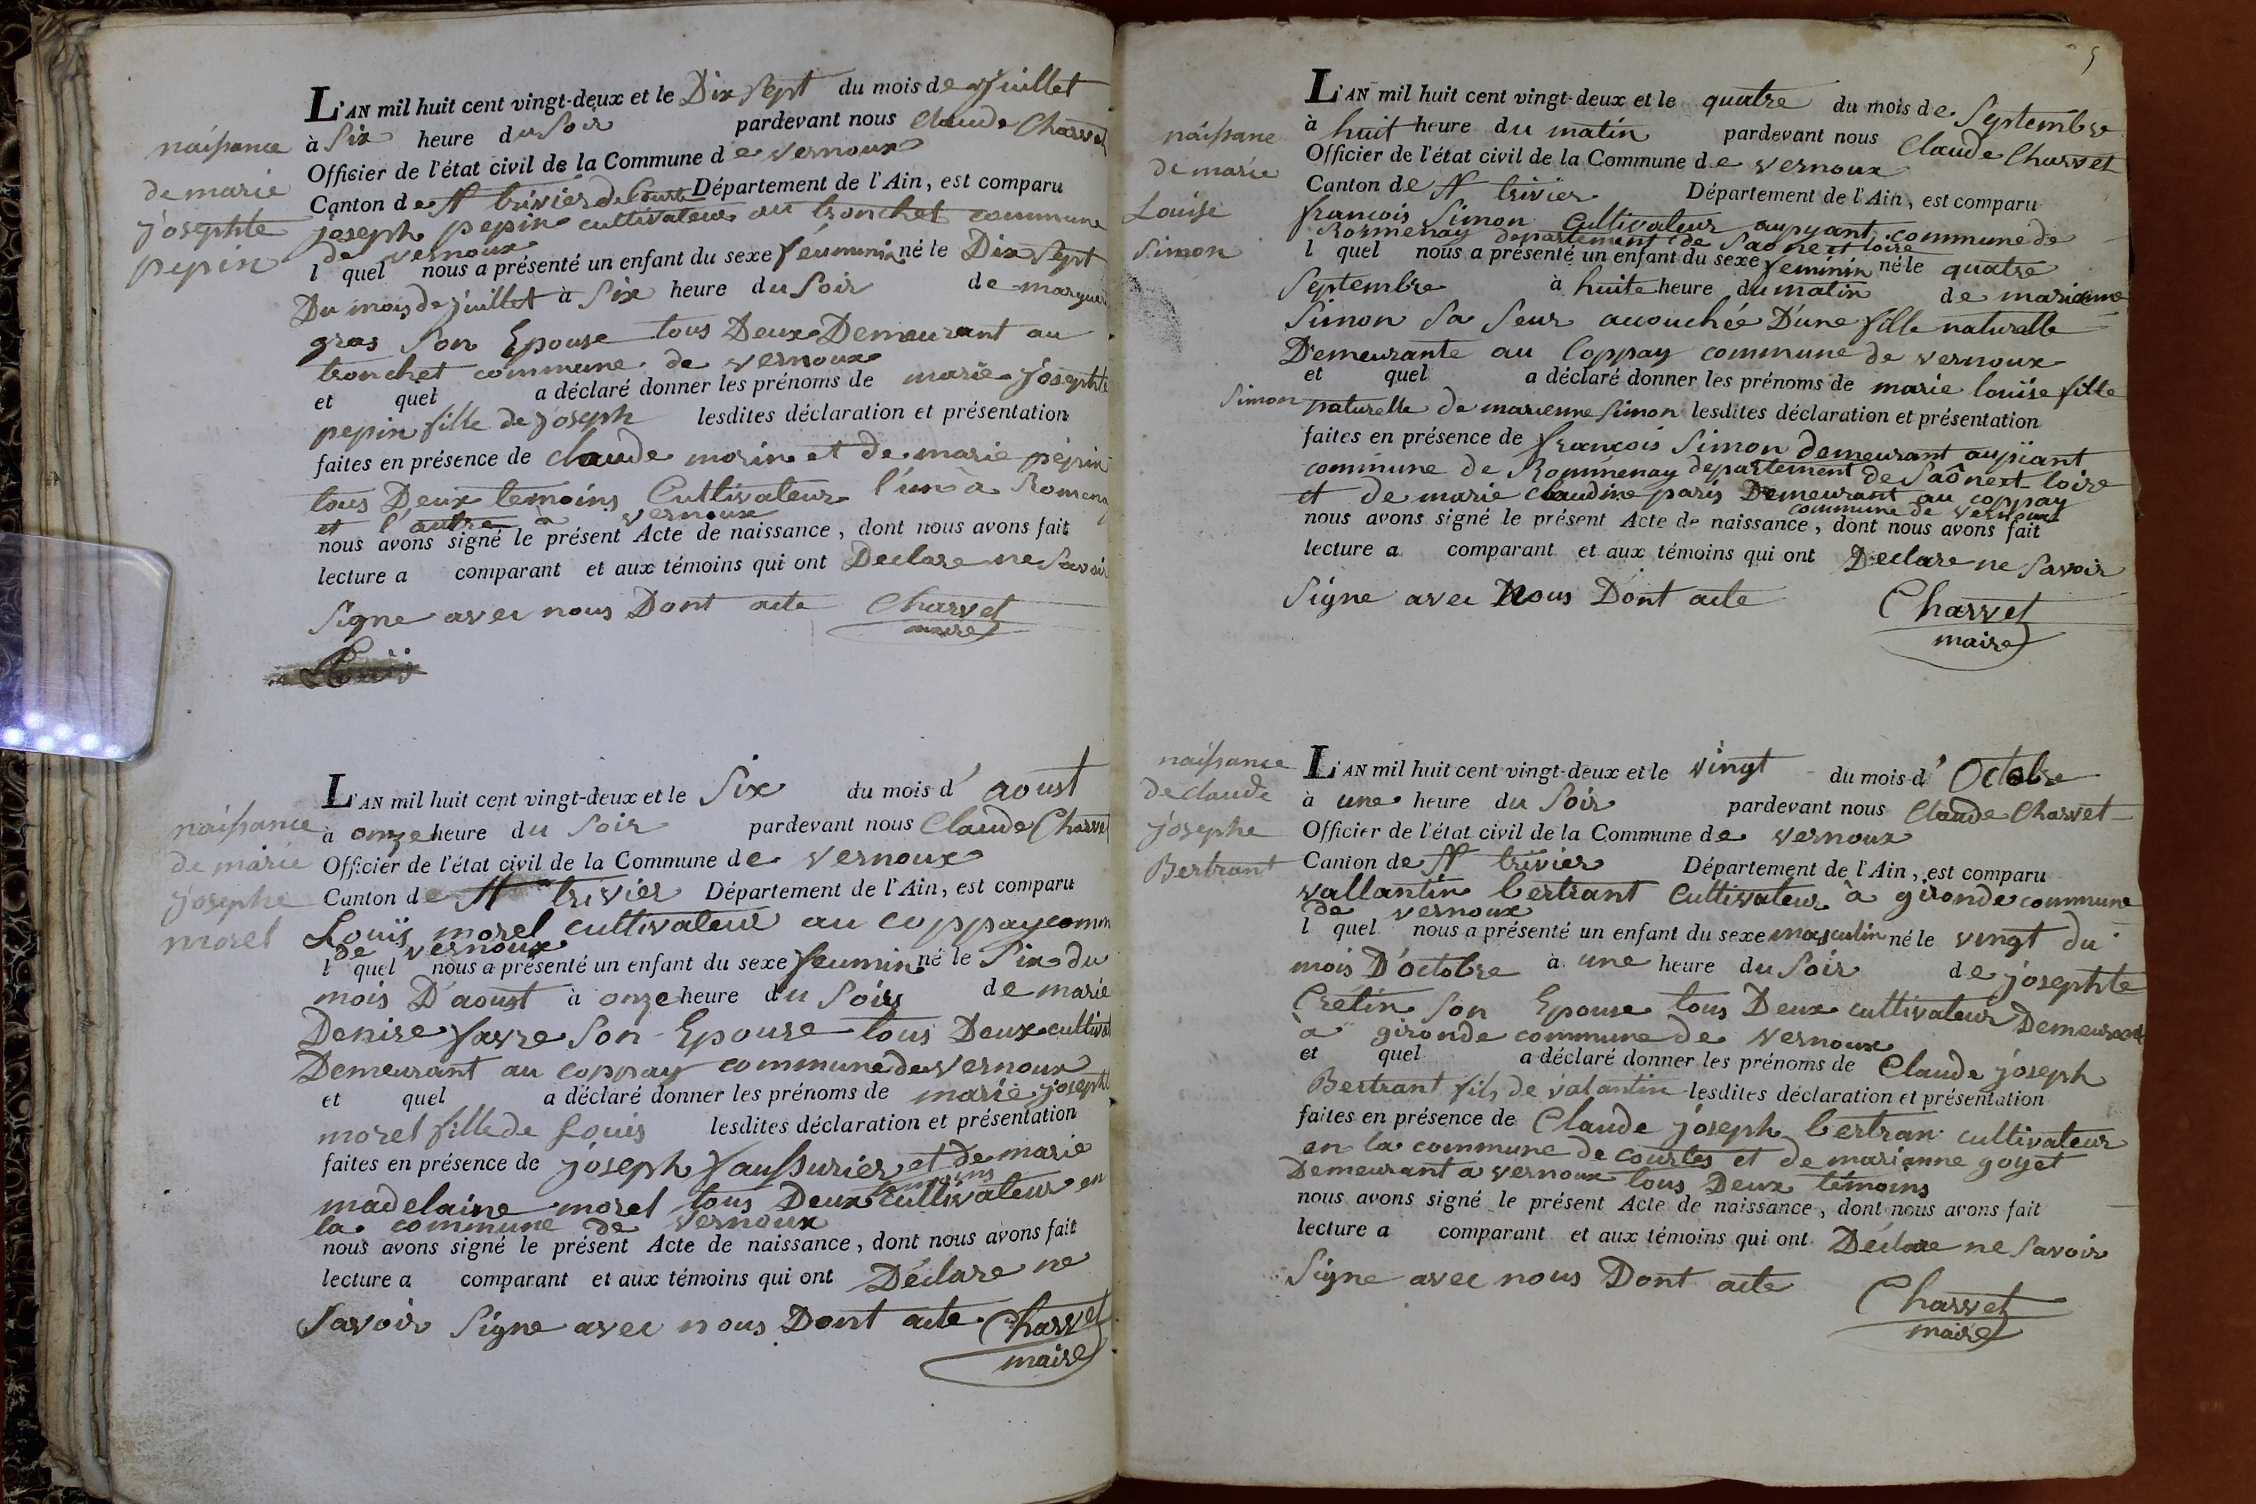 naissance
de marie
josephte
pepin
L'AN mil huit cent vingt-deux et le Dix Sept du mois de Juillet
à Six heure du Soir pardevant nous Claude Charvet
Officier de l'état civil de la Commune de vernoux
Canton de St trivier de Courte Département de l'Ain, est comparu
joseph pepin cultivateur au tronchet commune
de vernoux
l quel nous a présenté un enfant du sexe féuminin né le Dix Sept
Du mois de juillet à Six heure du Soir de margueri
gras Son Epouse tous Deux Demeurant au
tronchet commune de vernoux
et quel a déclaré donner les prénoms de marie josephte
pepin fille de joseph lesdites déclaration et présentation
faites en présence de claude morin et de marie pepin
tous Deux temoins Cultivateur l'un à Romena
et l'autre à vernoux
nous avons signé le présent Acte de naissance, dont nous avons fait
lecture a comparant et aux témoins qui ont Declare ne Savoir
Signe avec nous Dont acte Charvet
maire
naissance
de marie
josephe
morel
L'AN mil huit cent vingt-deux et le Six du mois d' aoust
à onze heure du Soir pardevant nous Claude Charvet
Officier de l'état civil de la Commune de vernoux
Canton de St trivier Département de l'Ain, est comparu
Louis morel cultivateur au coppay comm
de vernoux
l quel nous a présenté un enfant du sexe feuminin né le Six du
mois D'aoust à onze heure du Soir de marie
Denise favre Son Epouse tous Deux cultivat
Demeurant au coppay commune de vernoux
et quel a déclaré donner les prénoms de marie josepht
morel fille de Louis lesdites déclaration et présentation
faites en présence de joseph faussurier et de marie
temoins
madelaine morel tous Deux cultivateur en
la commune de vernoux
nous avons signé le présent Acte de naissance, dont nous avons fait
lecture a comparant et aux témoins qui ont Déclare ne
Savoir Signe avec nous Dont acte Charvet
maire
5
naissane
de marie
Louise
Simon
L'AN mil huit cent vingt-deux et le quatre du mois de Septembre
à huit heure du matin pardevant nous Claude Charvet
Officier de l'état civil de la Commune de vernoux
Canton de St trivier Département de l'Ain, est comparu
francois Simon Cultivateur aupyant commune de
Rormenay departement de Saone et loire
l quel nous a présenté un enfant du sexe feminin né le quatre
Septembre à huite heure du matin de marienne
Simon Sa Seur acouchée D'une fille naturelle
Demeurante au Coppay commune de vernoux
et quel a déclaré donner les prénoms de marie louise fille
Simon naturelle de marienne Simon lesdites déclaration et présentation
faites en présence de françois Simon demeurant aupiant
commune de Rommenay departement de Saône et loire
et de marie claudine paris Demeurant au coppay
commune de vernoux
nous avons signé le présent Acte de naissance, dont nous avons fait
lecture a comparant et aux témoins qui ont Declare ne Savoir
Signe avec Nous Dont acte Charvet
maire
naissance
de claude
josephe
Bertrant
L'AN mil huit cent vingt-deux et le vingt du mois d' Octobre
à une heure du Soir pardevant nous Claude Charvet
Officier de l'état civil de la Commune de vernoux
Canton de St trivier Département de l'Ain, est comparu
vallantin bertrant Cultivateur à gironde commune
de vernoux
l quel nous a présenté un enfant du sexe masculin né le vingt du
mois D'octobre à une heure du Soir de josephte
Crétin Son Epouse tous Deux cultivateur Demeurant
à gironde commune de vernoux
et quel a déclaré donner les prénoms de Claude joseph
Bertrant fils de valantin lesdites déclaration et présentation
faites en présence de Claude joseph bertran cultivateur
en la commune de courtes et de marianne goyet
Demeurant à vernoux tous Deux témoins
nous avons signé le présent Acte de naissance, dont nous avons fait
lecture a comparant et aux témoins qui ont Déclare ne Savoir
Signe avec nous Dont acte Charvet
maire